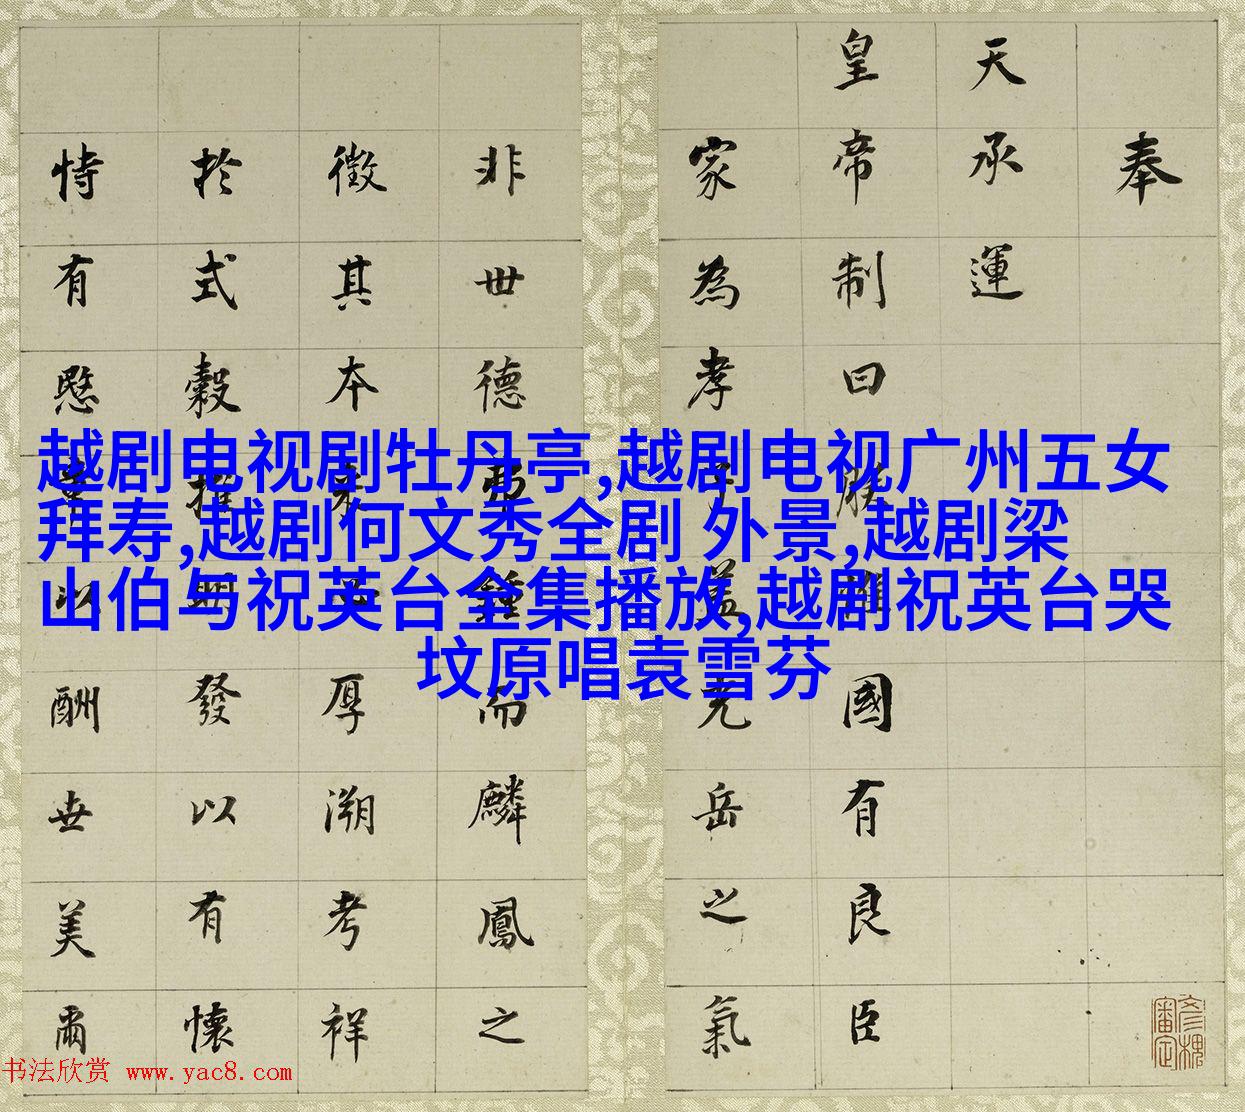 奉
天承運
皇帝制曰朕惟國有良臣
家為孝子蓋光岳之氣
非世德弗鍾而麟鳳之
徵其本厚溯考祥
於式穀推明發以有懷
恃有愍章以酬世美爾
越剧电视剧牡丹亭,越剧电视广州五女
拜寿,越剧何文秀全剧 外景,越剧梁
山伯与祝英台全集播放,越剧祝英台哭
坟原唱袁雪芬
彥槐審定
书法欣赏 www.yac8.com